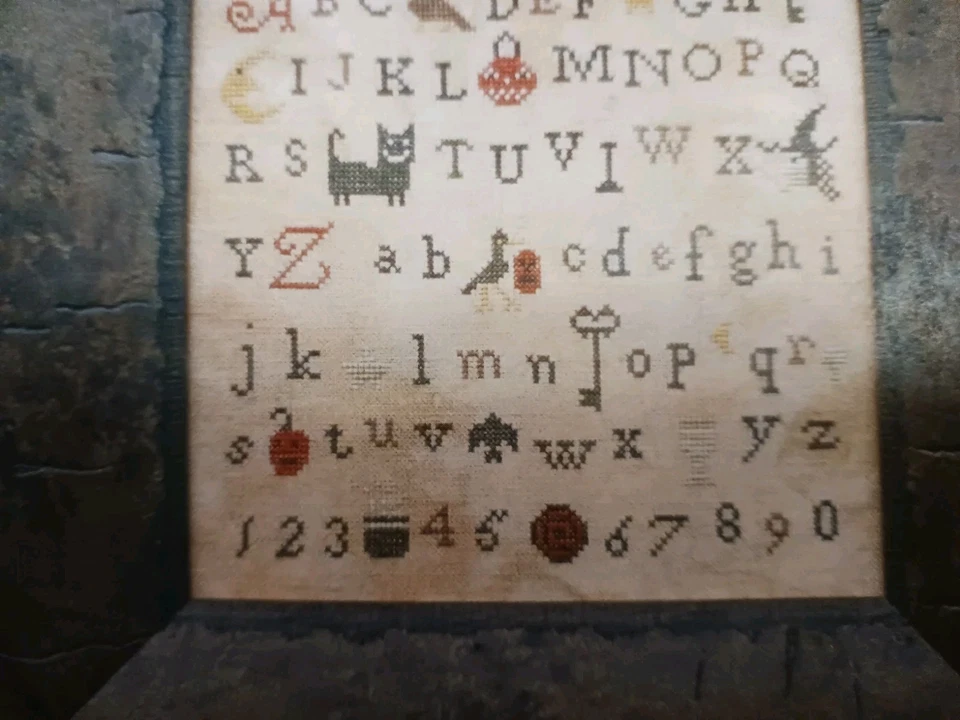 A B C D E F G H
I J K L M N O P Q
R S T U V I W X
Y Z a b c d e f g h i
j k l m n o p q r
s t u v w x y z
1 2 3 4 5 6 7 8 9 0